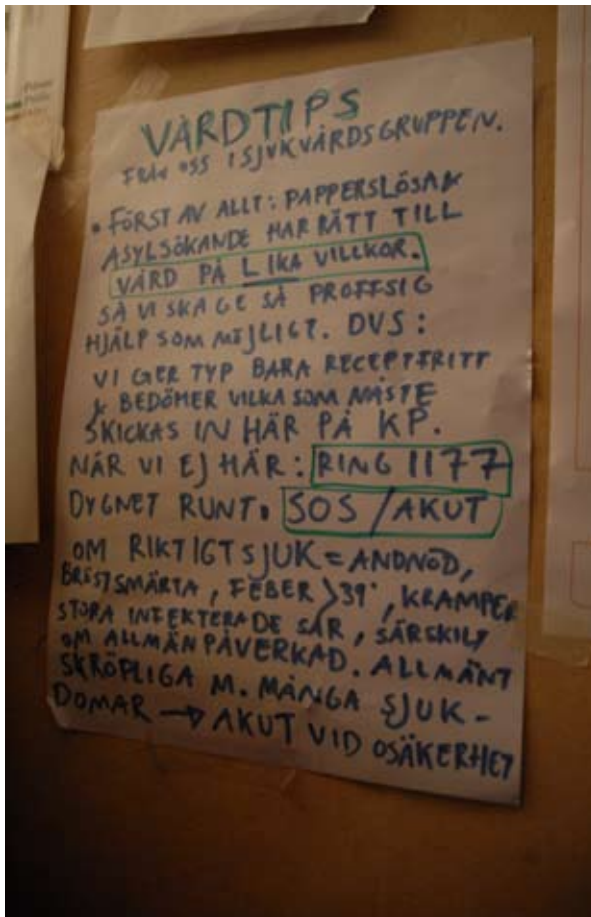 VÅRDTIPS
FRÅN OSS I SJUKVÅRDSGRUPPEN.
• FÖRST AV ALLT: PAPPERSLÖSA &
ASYLSÖKANDE HAR RÄTT TILL
VÅRD PÅ LIKA VILLKOR.
SÅ VI SKA GE SÅ PROFFSIG
HJÄLP SOM MÖJLIGT. DVS:
VI GER TYP BARA RECEPTFRITT
& BEDÖMER VILKA SOM MÅSTE
SKICKAS IN HÄR PÅ KP.
NÄR VI EJ HÄR: RING 1177
DYGNET RUNT. SOS/AKUT
OM RIKTIGT SJUK = ANDNÖD,
BRÖSTSMÄRTA, FEBER >39°, KRAMPER
STORA INFEKTERADE SÅR, SÄRSKILT
OM ALLMÄNPÅVERKAD. ALLMÄNT
SKRÖPLIGA M. MÅNGA SJUK-
DOMAR → AKUT VID OSÄKERHET